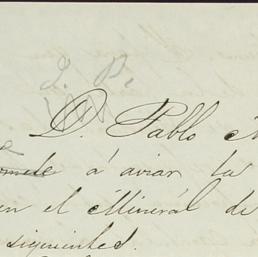 J. P.
D. Pablo
á aviar la
en el Mineral de
siguientes.